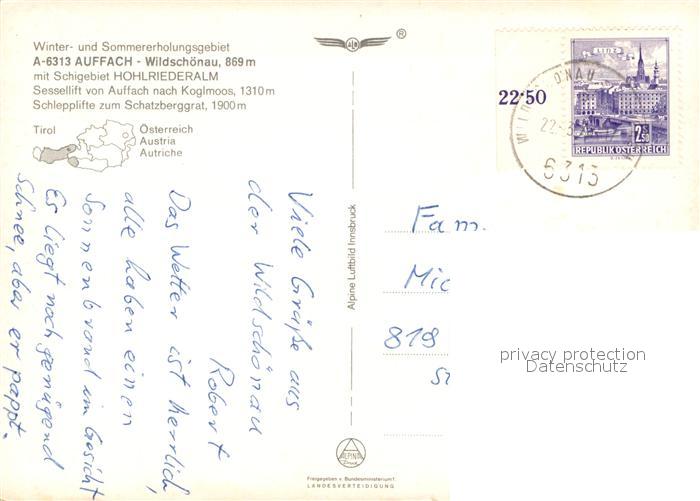 Winter- und Sommererholungsgebiet
A-6313 AUFFACH - Wildschönau, 869 m
mit Schigebiet HOHLRIEDERALM
Sessellift von Auffach nach Koglmoos, 1310 m
Schlepplifte zum Schatzberggrat, 1900 m
Tirol
Österreich
Austria
Autriche
Viele Grüße aus
der Wildschönau
Robert
Das Wetter ist herrlich,
alle haben einen
Sonnenbrand im Gesicht
Es liegt noch genügend
Schnee, aber er pappt.
Alpine Luftbild Innsbruck
ALPINE
Freigegeben v. Bundesministerium f.
LANDESVERTEIDIGUNG
®
22·50
LINZ
2.50
REPUBLIK ÖSTERREICH
6313
Fam.
Mic
819
privacy protection
Datenschutz